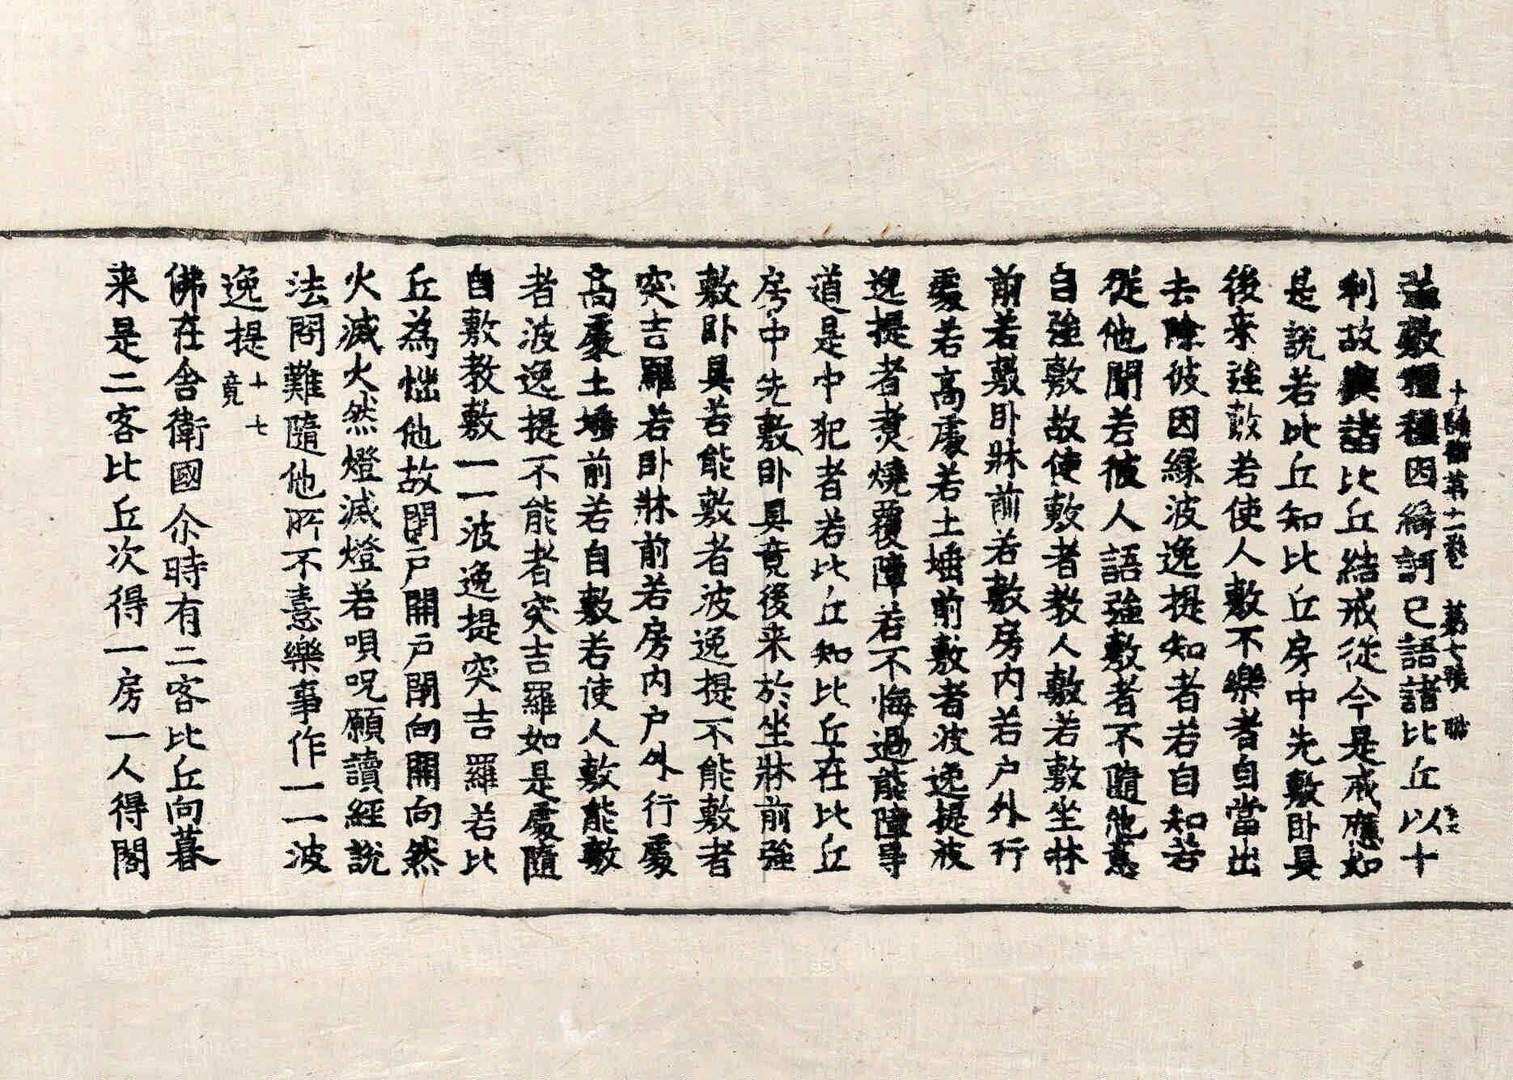 十誦律第十一卷 第七張 聽
強敷種種因緣訶已語諸比丘以十
利故與諸比丘結戒從今是戒應如
是說若比丘知比丘房中先敷卧具
後来強敷若使人敷不樂者自當出
去除彼因縁波逸提知者若自知若
從他聞若彼人語強敷者不隨他意
自強敷故使敷者教人敷若敷坐牀
前若敷卧牀前若敷房内若户外行
處若高處若土埵前敷者波逸提波
逸提者煑燒覆障若不悔過能障㝵
道是中犯者若比丘知比丘在比丘
房中先敷卧具竟後来於坐牀前強
敷卧具若能敷者波逸提不能敷者
突吉羅若卧牀前若房内户外行處
高處土埵前若自敷若使人敷能敷
者波逸提不能者突吉羅如是處隨
自敷教敷一一波逸提突吉羅若比
丘為惱他故閉户開户閉向開向然
火滅火然燈滅燈若唄呪願讀經說
法問難隨他所不憙樂事作一一波
逸提 十七竟
佛在舍衛國尒時有二客比丘向暮
来是二客比丘次得一房一人得閣